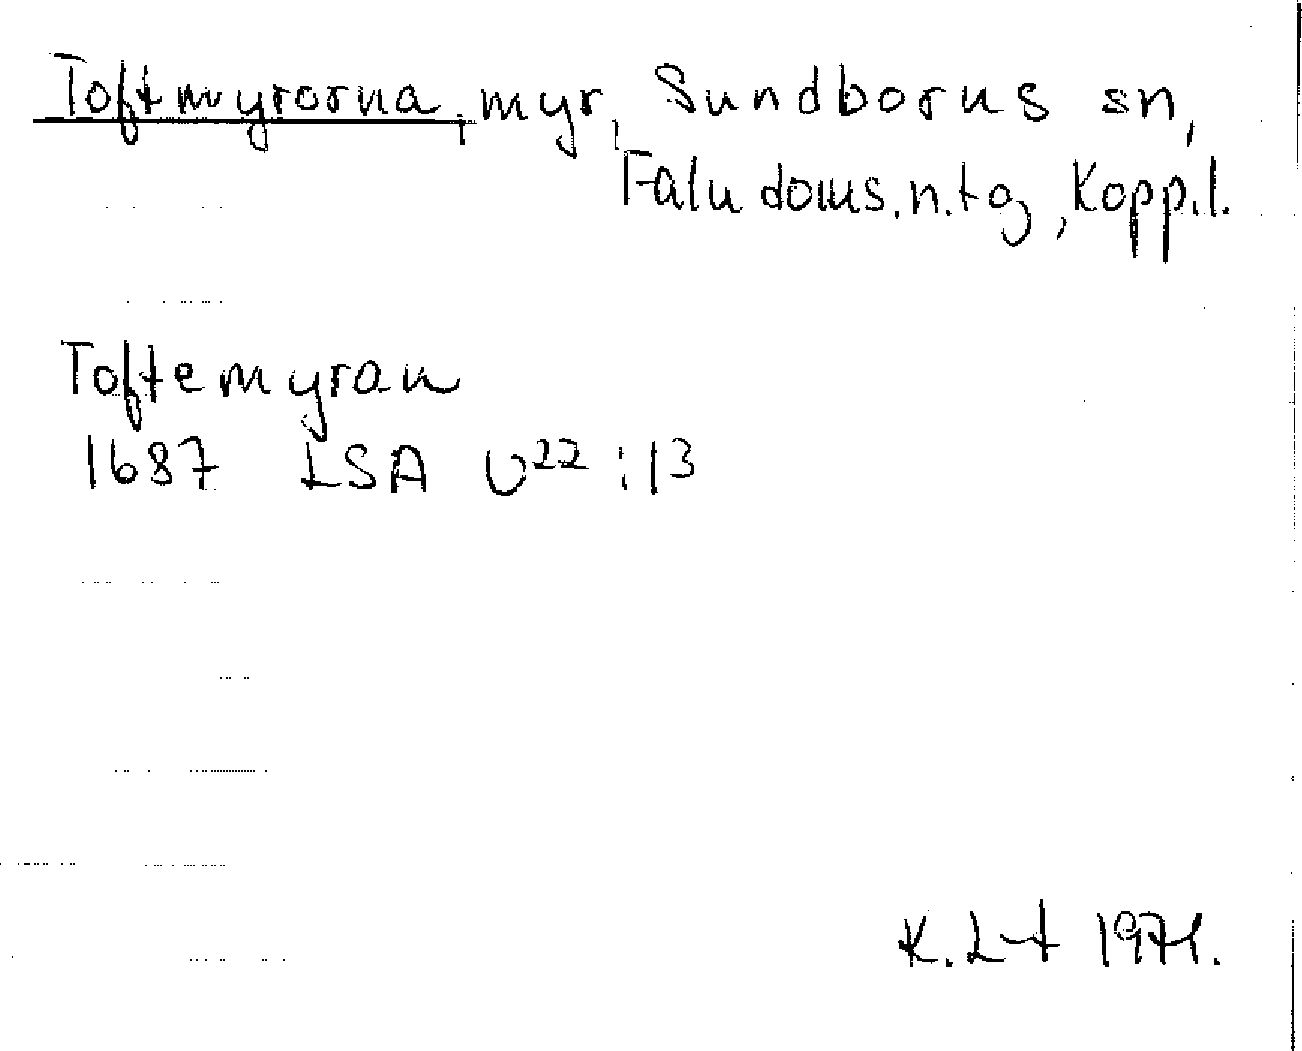 Toftmyrorna, myr, Sundborns sn,
Falu doms.n.tg, Kopp.l.
Toftemyran
1687 LSA U22:13
K. L-t 1971.